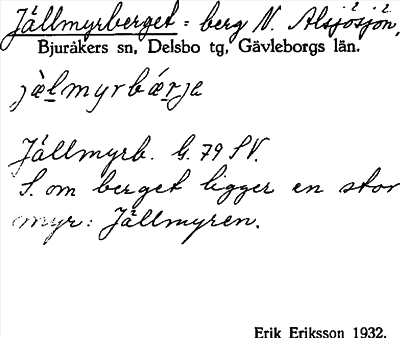 Jällmyrberget = berg N. Alsjösjön,
Bjuråkers sn, Delsbo tg, Gävleborgs län.
jæ̀lmyrbǽrje
Jällmyrb. G. 79 SV.
S. om berget ligger en stor
myr: Jällmyren.
Erik Eriksson 1932.